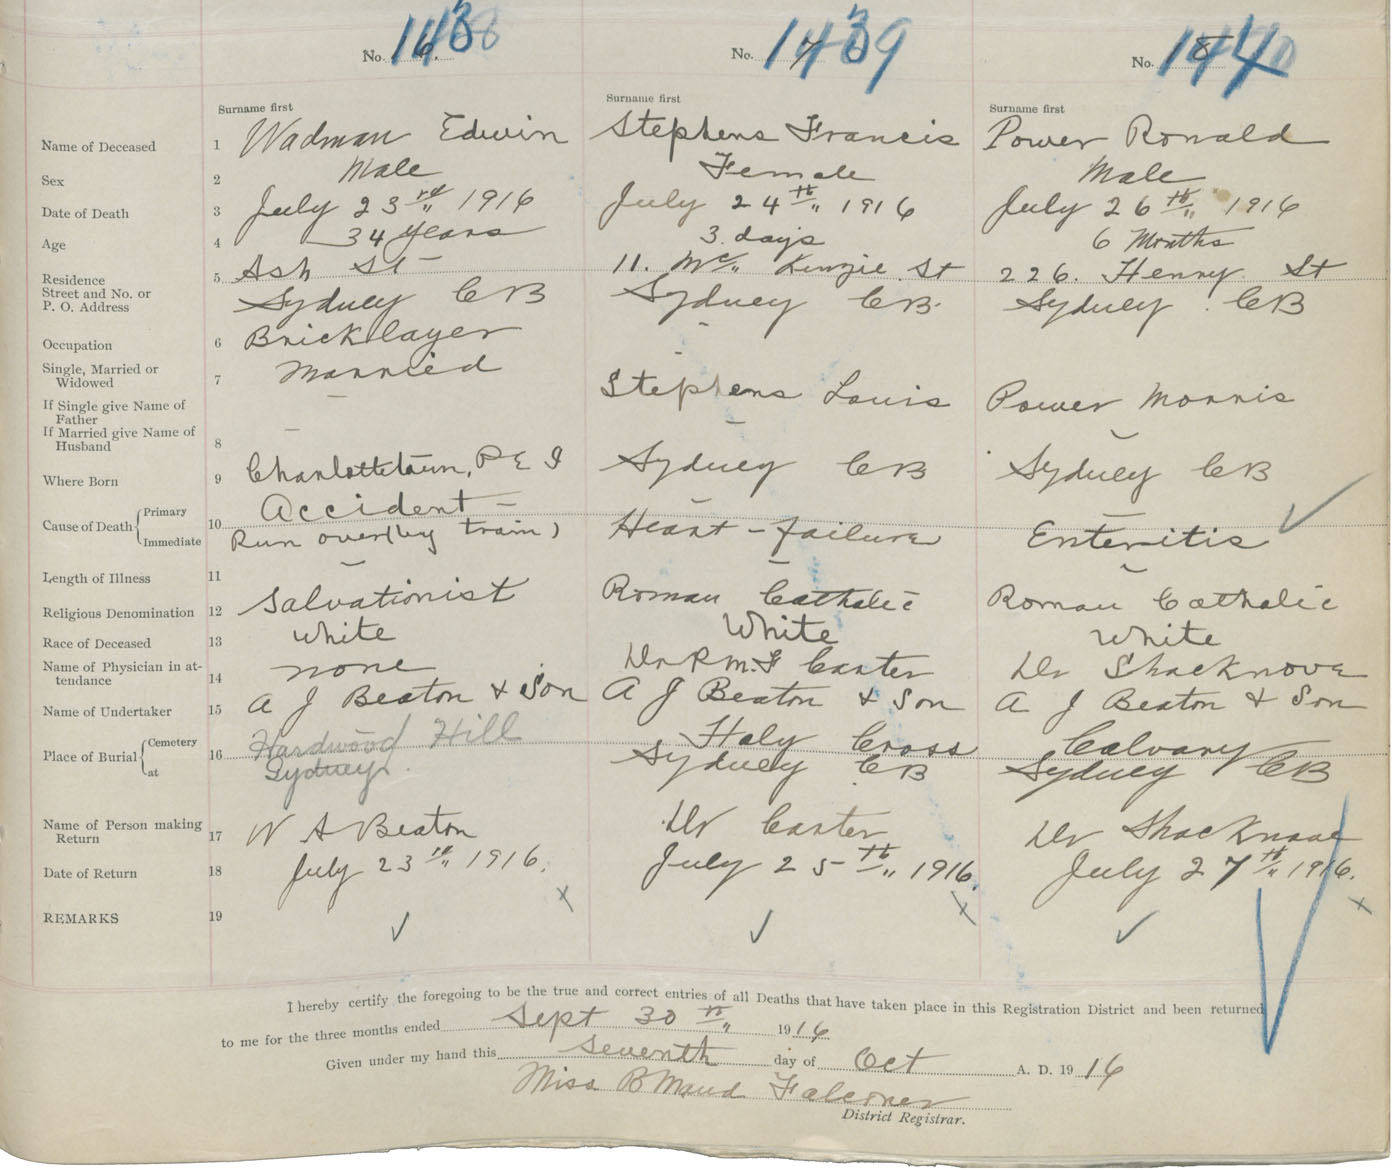 No. 16. 1438
No. 7 1439
No. 8 1440
Surname first
Surname first
Surname first
Name of Deceased 1 Wadman Edwin Stephens Francis Power Ronald
Sex 2 Male Female Male
Date of Death 3 July 23rd 1916 July 24th 1916 July 26th 1916
Age 4 34 years 3 days 6 Months
Residence 5 Ash St 11. Mc Kenzie St 226. Henry St
Street and No. or
P. O. Address Sydney CB Sydney CB. Sydney CB
Occupation 6 Bricklayer -
Single, Married or
Widowed 7 Married
If Single give Name of
Father - Stephens Louis Power Morris
If Married give Name of
Husband 8 - - -
Where Born 9 Charlottetown, P E I Sydney CB Sydney CB
Cause of Death { Primary 10 Accident - - -
Immediate Run over (by train) Heart-failure Enteritis
Length of Illness 11 - - -
Religious Denomination 12 Salvationist Roman Catholic Roman Catholic
Race of Deceased 13 White White White
Name of Physician in at-
tendance 14 none Dr R M. F Carter Dr Shacknove
Name of Undertaker 15 A J Beaton & Son A J Beaton & Son A J Beaton & Son
Place of Burial { Cemetery 16 Hardwood Hill Holy Cross Calvary
at Sydney. Sydney CB Sydney CB
Name of Person making
Return 17 W A Beaton Dr Carter Dr Shacknove
Date of Return 18 July 23rd 1916. July 25th 1916. July 27th 1916.
REMARKS 19
I hereby certify the foregoing to be the true and correct entries of all Deaths that have taken place in this Registration District and been returned
to me for the three months ended Sept 30th 1916
Given under my hand this seventh day of Oct A. D. 1916
Miss B Maud Falconer
District Registrar.